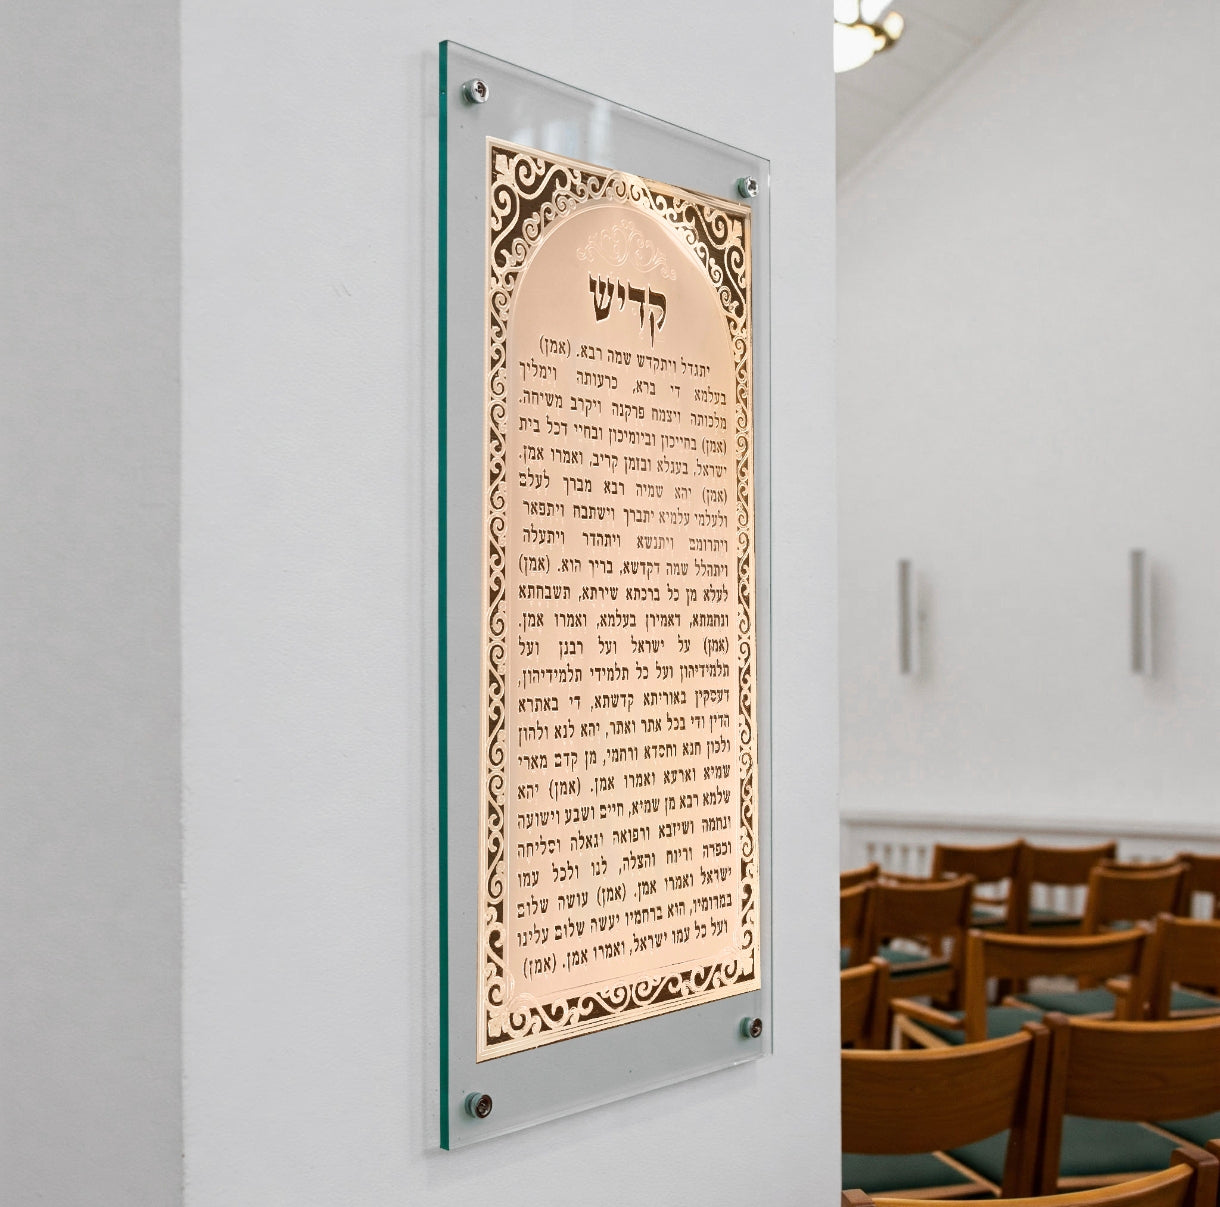 קדיש
יתגדל ויתקדש שמה רבא. (אמן)
בעלמא די ברא, כרעותה וימליך
מלכותה ויצמח פרקנה ויקרב משיחה.
(אמן) בחייכון וביומיכון ובחיי דכל בית
ישראל, בעגלא ובזמן קריב, ואמרו אמן.
(אמן) יהא שמיה רבא מברך לעלם
ולעלמי עלמיא יתברך וישתבח ויתפאר
ויתרומם ויתנשא ויתהדר ויתעלה
ויתהלל שמה דקדשא, בריך הוא. (אמן)
לעלא מן כל ברכתא שירתא, תשבחתא
ונחמתא, דאמירן בעלמא, ואמרו אמן.
(אמן) על ישראל ועל רבנן ועל
תלמידיהון ועל כל תלמידי תלמידיהון,
דעסקין באוריתא קדשתא, די באתרא
הדין ודי בכל אתר ואתר, יהא לנא ולהון
ולכון חנא וחסדא ורחמי, מן קדם מארי
שמיא וארעא ואמרו אמן. (אמן) יהא
שלמא רבא מן שמיא, חיים ושבע וישועה
ונחמה ושיזבא ורפואה וגאלה וסליחה
וכפרה וריוח והצלה, לנו ולכל עמו
ישראל ואמרו אמן. (אמן) עושה שלום
במרומיו, הוא ברחמיו יעשה שלום עלינו
ועל כל עמו ישראל, ואמרו אמן. (אמן)